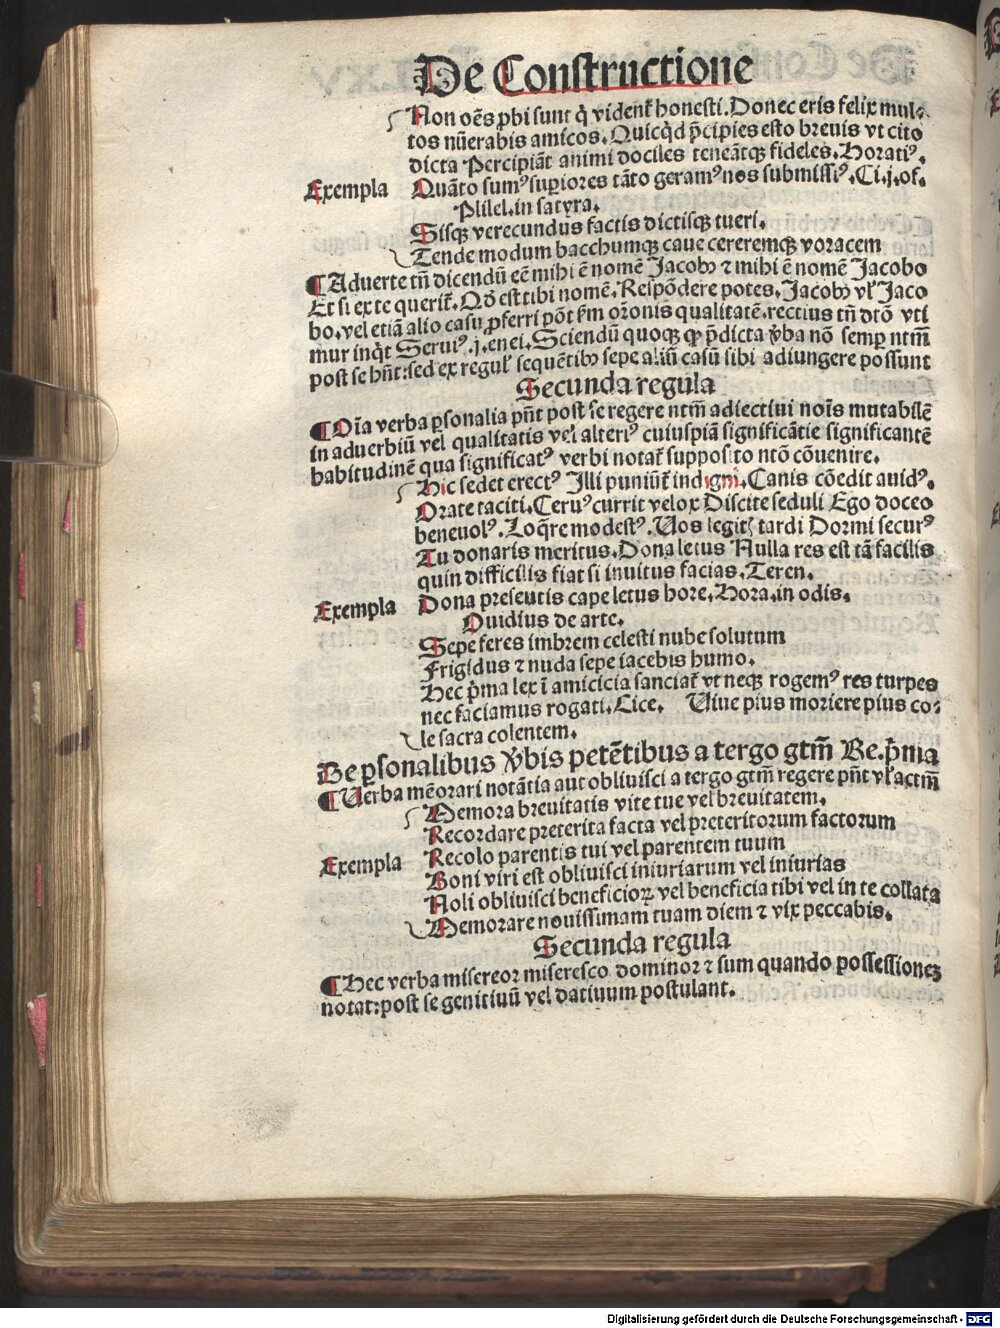 De Constructione
Non oẽs ꝓbi sunt q̇ vident᷑ honesti. Donec eris felix mul-
tos nũerabis amicos. Quicq̇d p̃cipies esto breuis vt cito
dicta Percipiãt animi dociles teneãtqꝫ fideles. Horatiꝰ.
Exempla Quãto sumꝰ suꝑiores tãto geramꝰ nos submissiꝰ. Ci. j. of.
Plilel. in satyra.
Sisqꝫ verecundus factis dictisqꝫ tueri.
Tende modum bacchumqꝫ caue cereremqꝫ voracem
¶ Aduerte tñ dicendũ eẽ mihi ẽ nomẽ Jacobꝰ ⁊ mihi ẽ nomẽ Jacobo
Et si ex te querit᷑. Qđ est tibi nomẽ. Respõdere potes. Jacobꝰ vl᷑ Jaco
bo. vel etiã alio casu ꝓferri põt ẜm orõnis qualitatẽ. rectius tñ dtõ vti
mur inq̇t Seruiꝰ. j. enei. Sciendũ quoqꝫ ꝙ p̃dicta v̓ba nõ semꝑ ntm̃
post se hñt: sed ex regul᷑ sequẽtibꝰ sepe aliũ casũ sibi adiungere possunt
Secunda regula
¶ Oĩa verba ꝑsonalia pñt post se regere ntm̃ adiectiui noĩs mutabilẽ
in aduerbiũ vel qualitatis vel alteriꝰ cuiuspiã significãtie significantẽ
habitudinẽ qua significatꝰ verbi notat᷑ supposito ntõ cõuenire.
Hic sedet erectꝰ Illi puniũt᷑ indigni. Canis cõedit auidꝰ.
Orate taciti. Ceruꝰ currit velox Discite seduli Ego doceo
beneuolꝰ. Loq̃re modestꝰ. Uos legitꝭ tardi Dormi securꝰ
Tu donaris meritus. Dona letus Nulla res est tã facilis
quin difficilis fiat si inuitus facias. Teren.
Exempla Dona presentis cape letus hore. Hora. in odis.
Ouidius de arte.
Sepe feres imbrem celesti nube solutum
Frigidus ⁊ nuda sepe iacebis humo.
Hec p̃ma lex ĩ amicicia sanciat᷑ vt neqꝫ rogemꝰ res turpes
nec faciamus rogati. Cice. Uiue pius moriere pius co-
le sacra colentem.
De ꝑsonalibus v̓bis petẽtibus a tergo gtm̃ Re. p̃ma
¶ Uerba mẽorari notãtia aut obliuisci a tergo gtm̃ regere pñt vl᷑ actm̃
Memora breuitatis vite tue vel breuitatem.
Recordare preterita facta vel preteritorum factorum
Exempla Recolo parentis tui vel parentem tuum
Boni viri est obliuisci iniuriarum vel iniurias
Noli obliuisci beneficioꝝ vel beneficia tibi vel in te collata
Memorare nouissimam tuam diem ⁊ vix peccabis.
Secunda regula
¶ Hec verba misereor miseresco dominor ⁊ sum quando possessionez
notat: post se genitiuũ vel datiuum postulant.
Digitalisierung gefördert durch die Deutsche Forschungsgemeinschaft - DFG